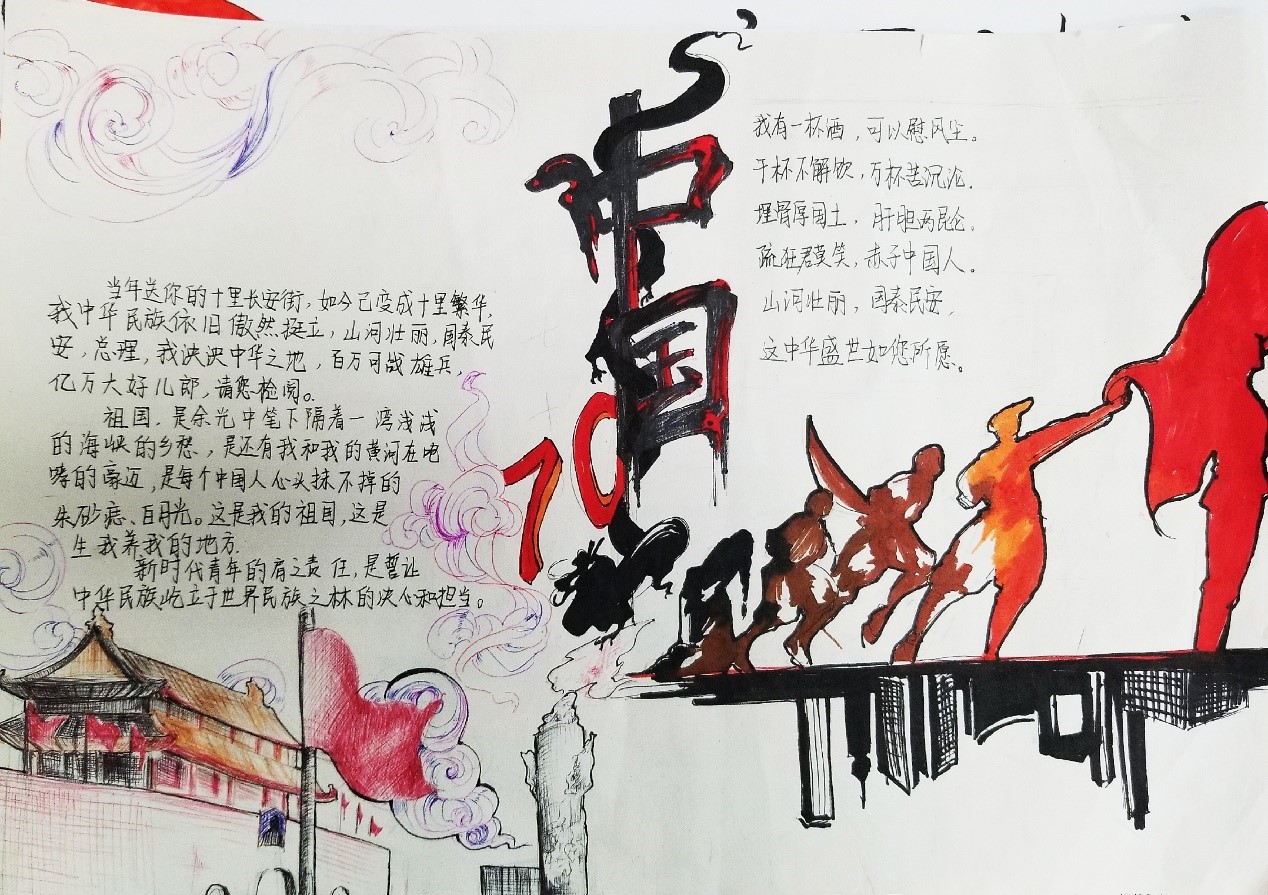 当年送你的十里长安街,如今已变成十里繁华,
我中华民族依旧傲然挺立,山河壮丽,国泰民
安,总理,我泱泱中华之地,百万可战雄兵,
亿万大好儿郎,请您检阅。
祖国,是余光中笔下隔着一湾浅浅
的海峡的乡愁,是还有我和我的黄河在咆
哮的豪迈,是每个中国人心头抹不掉的
朱砂痣、白月光。这是我的祖国,这是
生我养我的地方.
新时代青年的肩之责任,是誓让
中华民族屹立于世界民族之林的决心和担当。
中国
70
我有一杯酒,可以慰风尘。
千杯不解饮,万杯苦沉沦.
埋骨厚国土,肝胆两昆仑。
疏狂君莫笑,赤子中国人。
山河壮丽,国泰民安,
这中华盛世如您所愿。